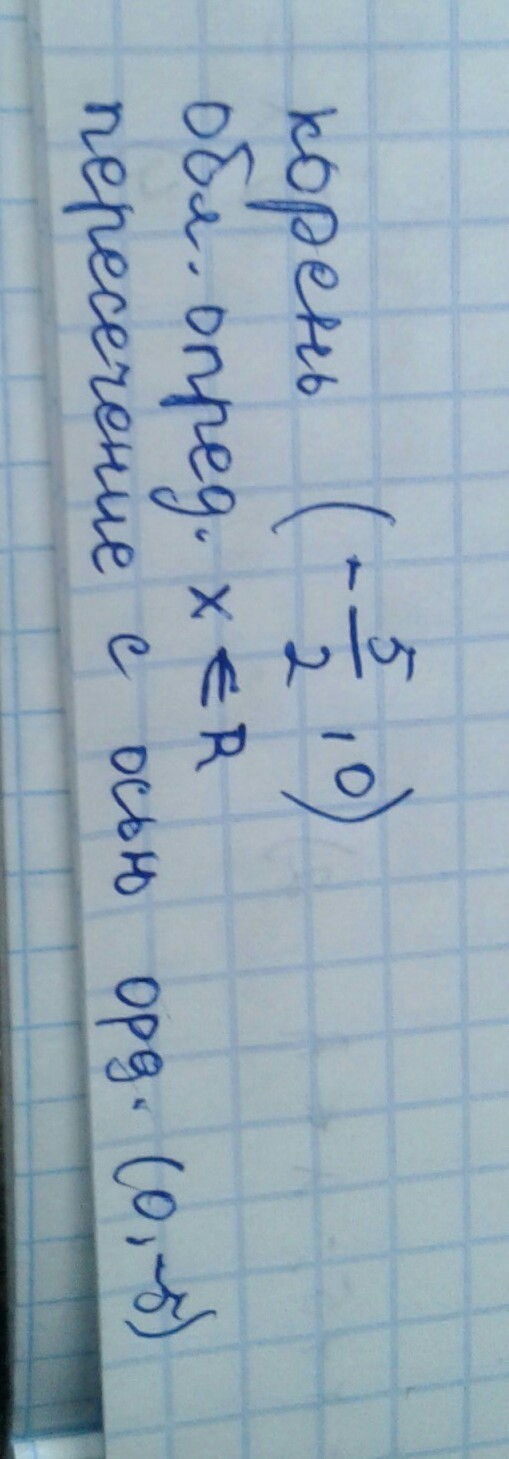 корень (-5/2, 0)
обл. опред. x ∈ R
пересечение с осью орд. (0, -5)